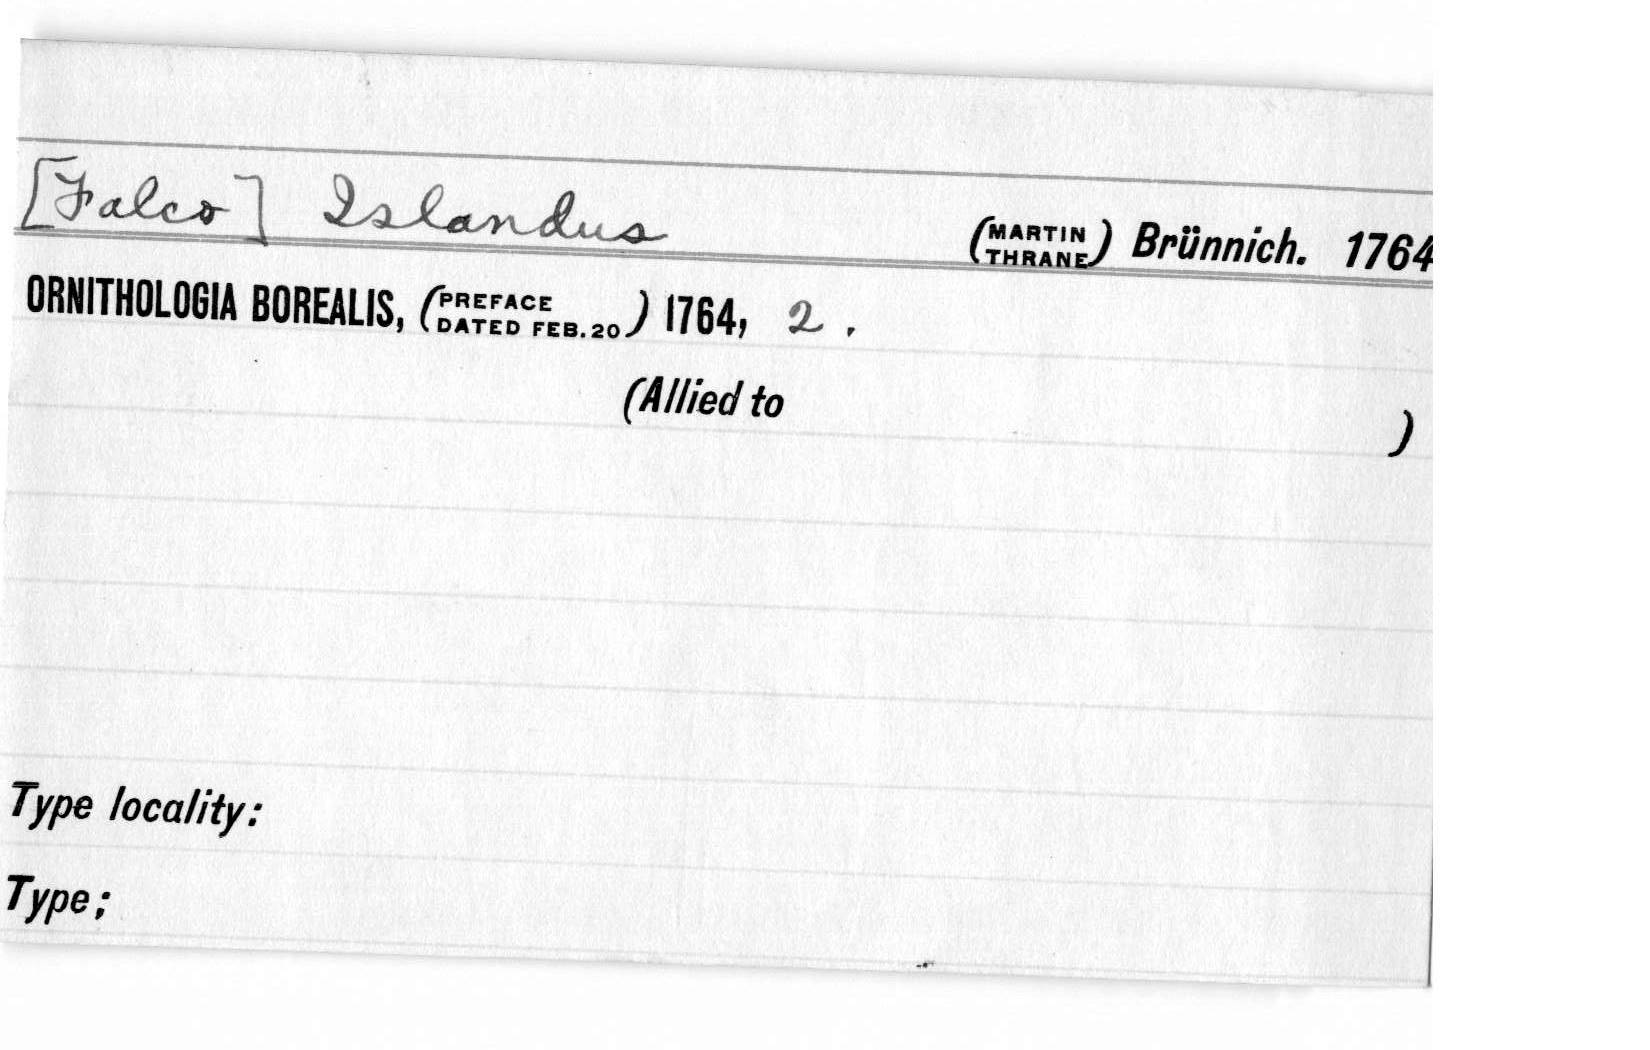 [Falco] Islandus (MARTIN THRANE) Brünnich. 1764
ORNITHOLOGIA BOREALIS, (PREFACE DATED FEB. 20) 1764, 2.
(Allied to )
Type locality:
Type;